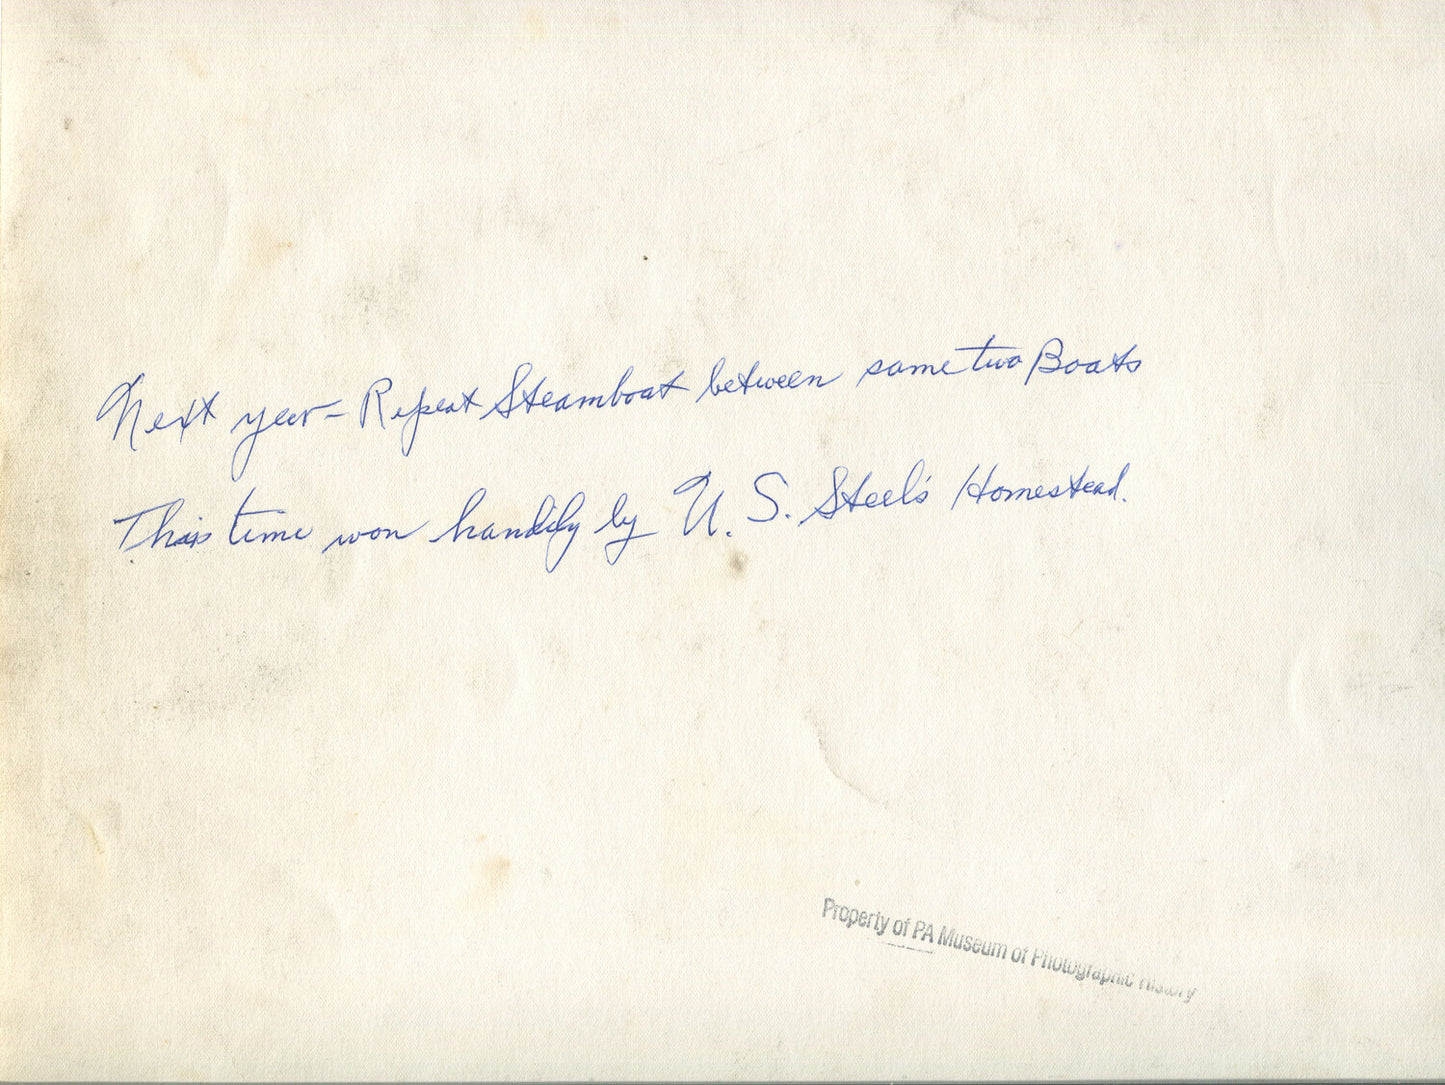 Next year - Repeat Steamboat between same two Boats
This time won handily by U. S. Steel's Homestead.
Property of PA Museum of Photographic History